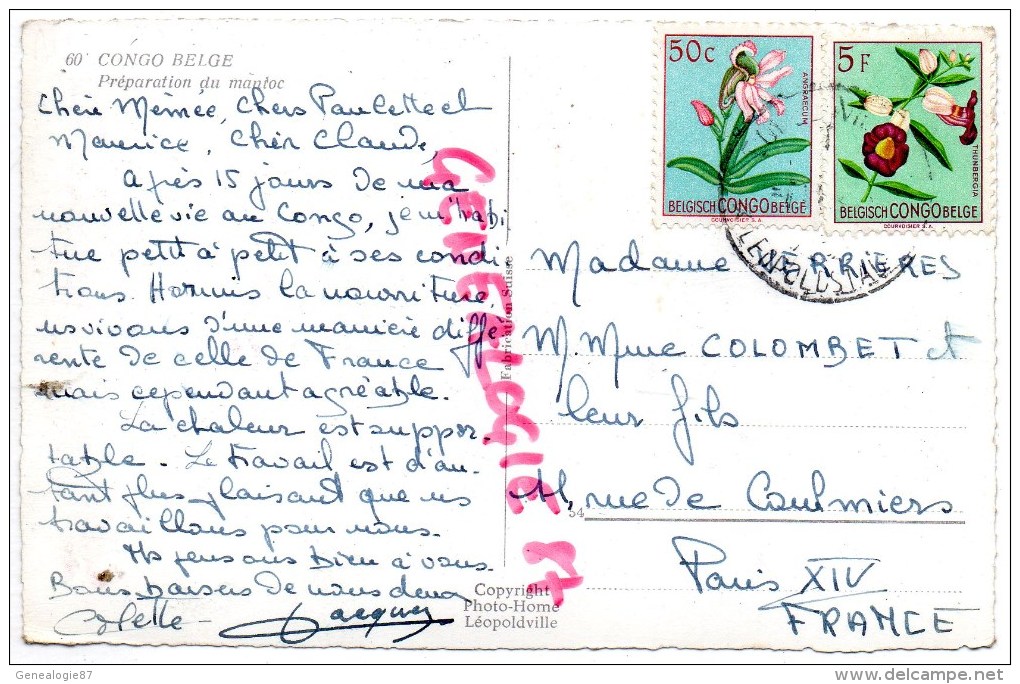 60 CONGO BELGE
Préparation du manioc
Chère Mémée, Chers Paulette et
Maurice, Cher Claude,
Après 15 jours de ma
nouvelle vie au Congo, je m'habi
tue petit à petit à ses condi
tions. Hormis la nourriture,
ns vivons d'une manière diffé-
rente de celle de France
mais cependant agréable.
La chaleur est suppor-
table. Le travail est d'au-
tant plus plaisant que ns
travaillons pour nous.
Ns pensons bien à vous.
Bons baisers de nous deux
Colette - Jacques
GENEALOGIE 87
Fabrication Suisse
Copyright
Photo-Home
Léopoldville
50 C
ANGRAECUM
BELGISCH CONGO BELGE
COURVOISIER S.A.
5 F
THUNBERGIA
BELGISCH CONGO BELGE
COURVOISIER S.A.
LEOPOLDSTAD
Madame FERRIERES
M. Mme COLOMBET et
leur fils
11, rue de Coulmiers
54
Paris XIV
FRANCE
Genealogie87
delcampe.net